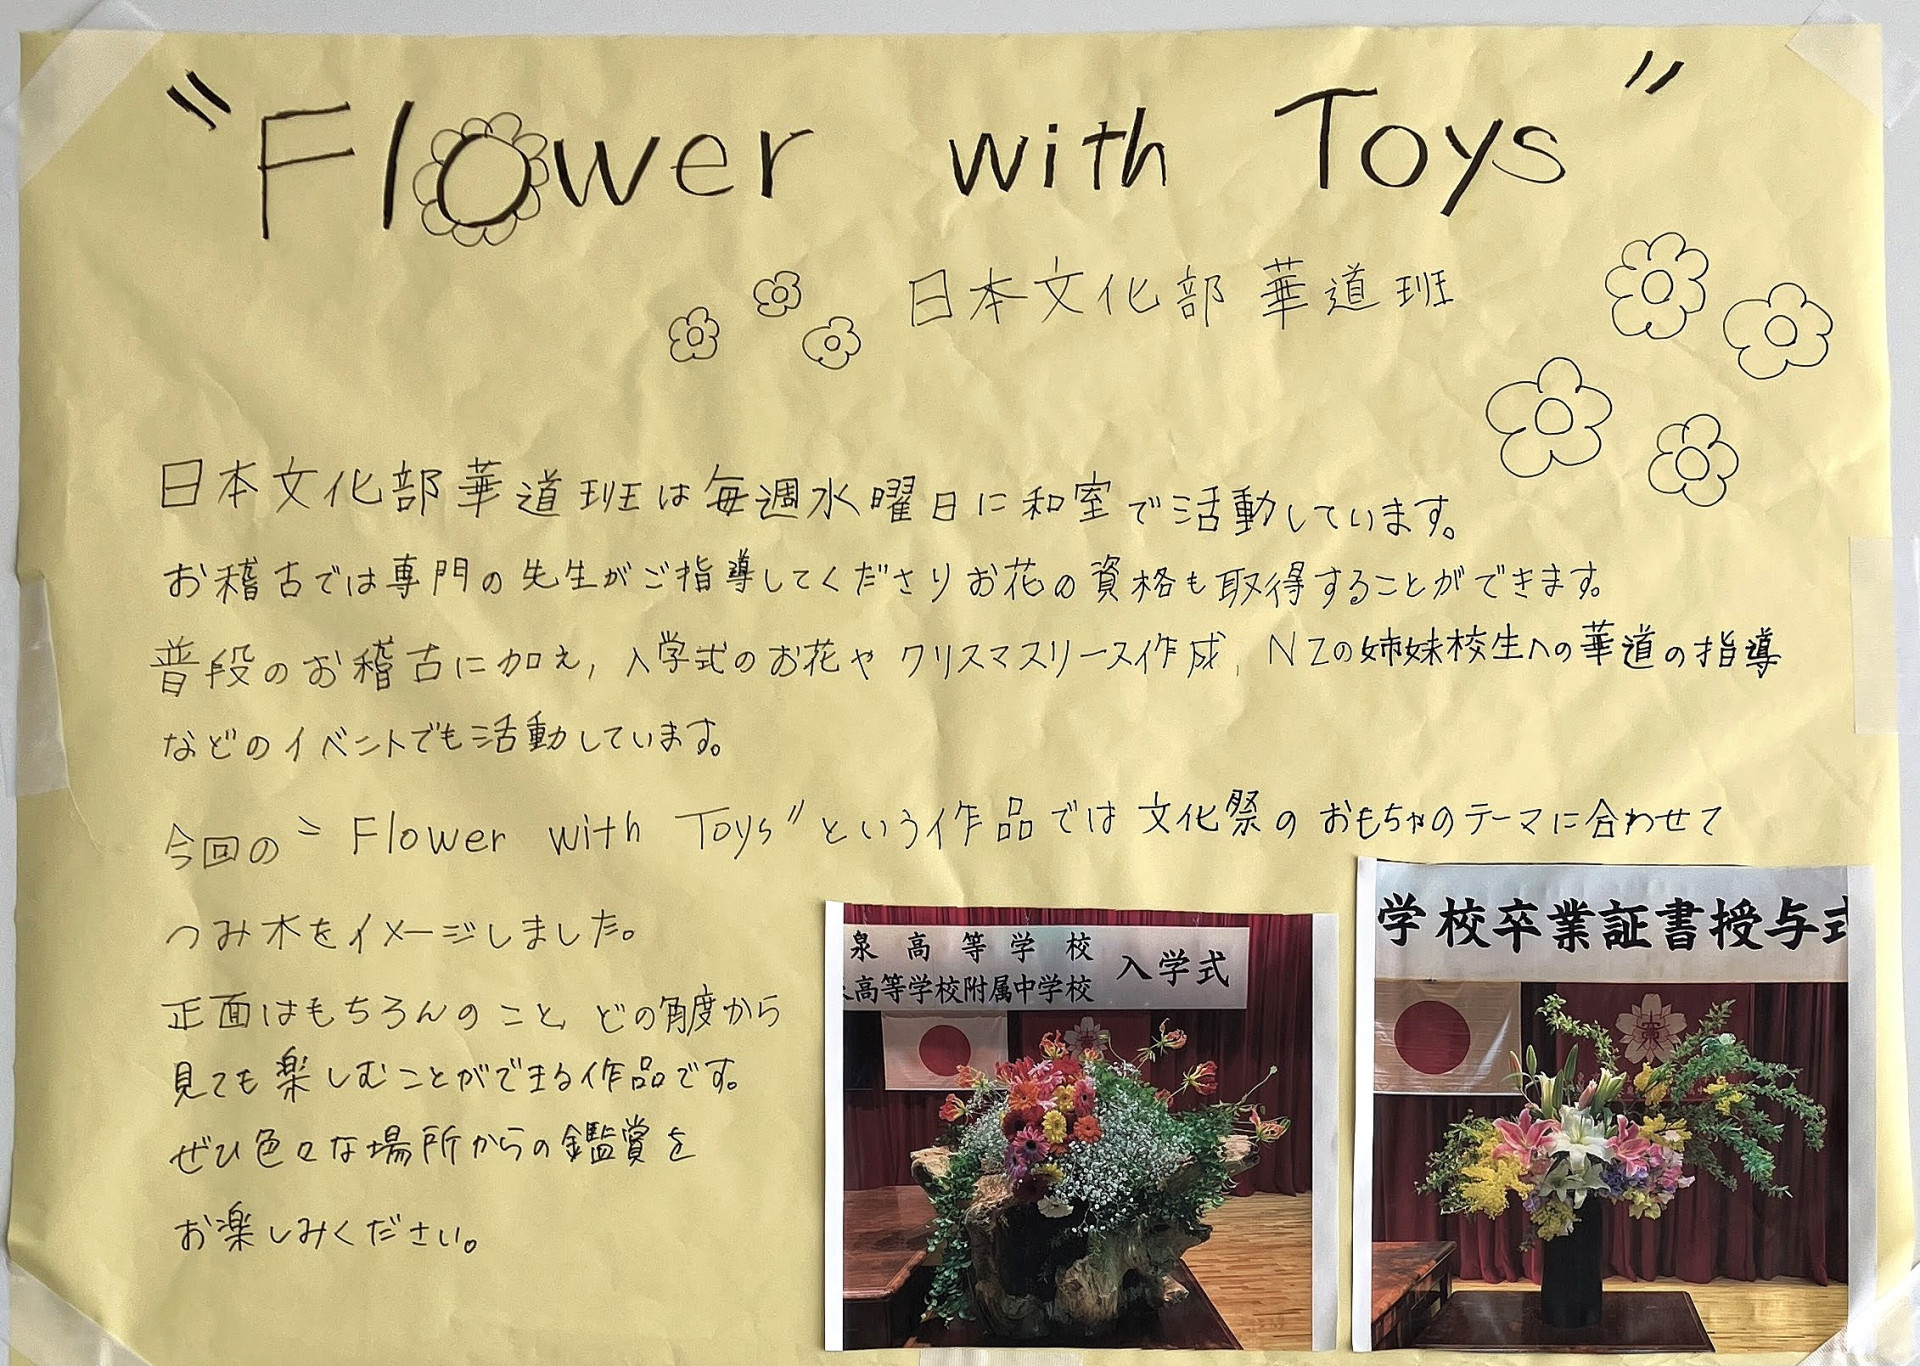 "Flower with Toys"
日本文化部 華道班
日本文化部華道班は毎週水曜日に和室で活動しています。
お稽古では専門の先生がご指導してくださりお花の資格も取得することができます。
普段のお稽古に加え,入学式のお花やクリスマスリース作成,NZの姉妹校生への華道の指導
などのイベントでも活動しています。
今回の"Flower with Toys"という作品では文化祭のおもちゃのテーマに合わせて
つみ木をイメージしました。
正面はもちろんのこと、どの角度から
見ても楽しむことができる作品です。
ぜひ色々な場所からの鑑賞を
お楽しみください。
泉高等学校
高等学校附属中学校
入学式
学校卒業証書授与式